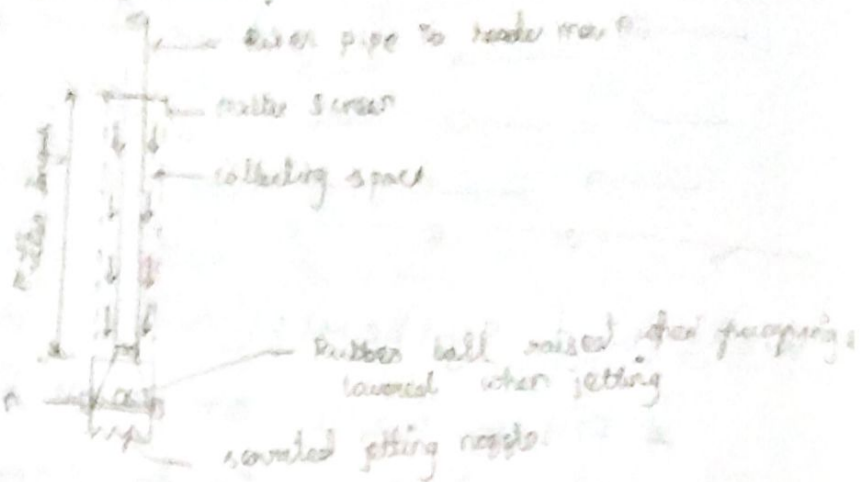 Riser pipe to header main
mesh screen
collecting space
Rubber ball raised when pumping,
lowered when jetting
serrated jetting nozzle.